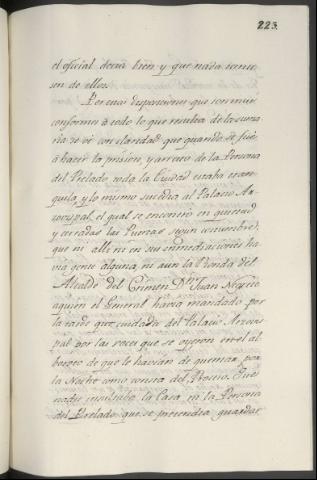 223.
el oficial deria bien y que nada temie
sen de ellos.
Por esas disposiciones que son muy
conformes à todo lo que resulta de la suma
ria se ve con claridad que quando se fué
à hacer la prision, y arresto de la Persona
del Prelado toda la Ciudad estaba tran
quila, y lo mismo sucedia al Palacio Ar-
zobispal, el qual se encontrò en quietud
y cerradas las Puertas segun costumbre,
que ni alli ni en sus inmediaciones ha
via gente alguna, ni aun la Ronda del
Alcalde del Crimen Dn. Juan Negrete
aquien el General havia mandado por
la tarde que cuidase del Palacio Arzovis
pal por las voces que se oyeron en el al
boroto de que le havian de quemar por
la Noche como consta del Proceso. Que
nadie insultaba la Casa ni la Persona
del Prelado que se pretendia guardar